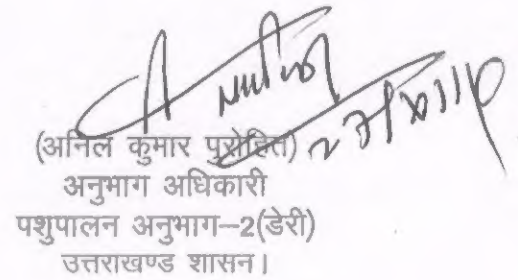 (अनिल कुमार पुरोहित)
अनुभाग अधिकारी
पशुपालन अनुभाग–2(डेरी)
उत्तराखण्ड शासन।